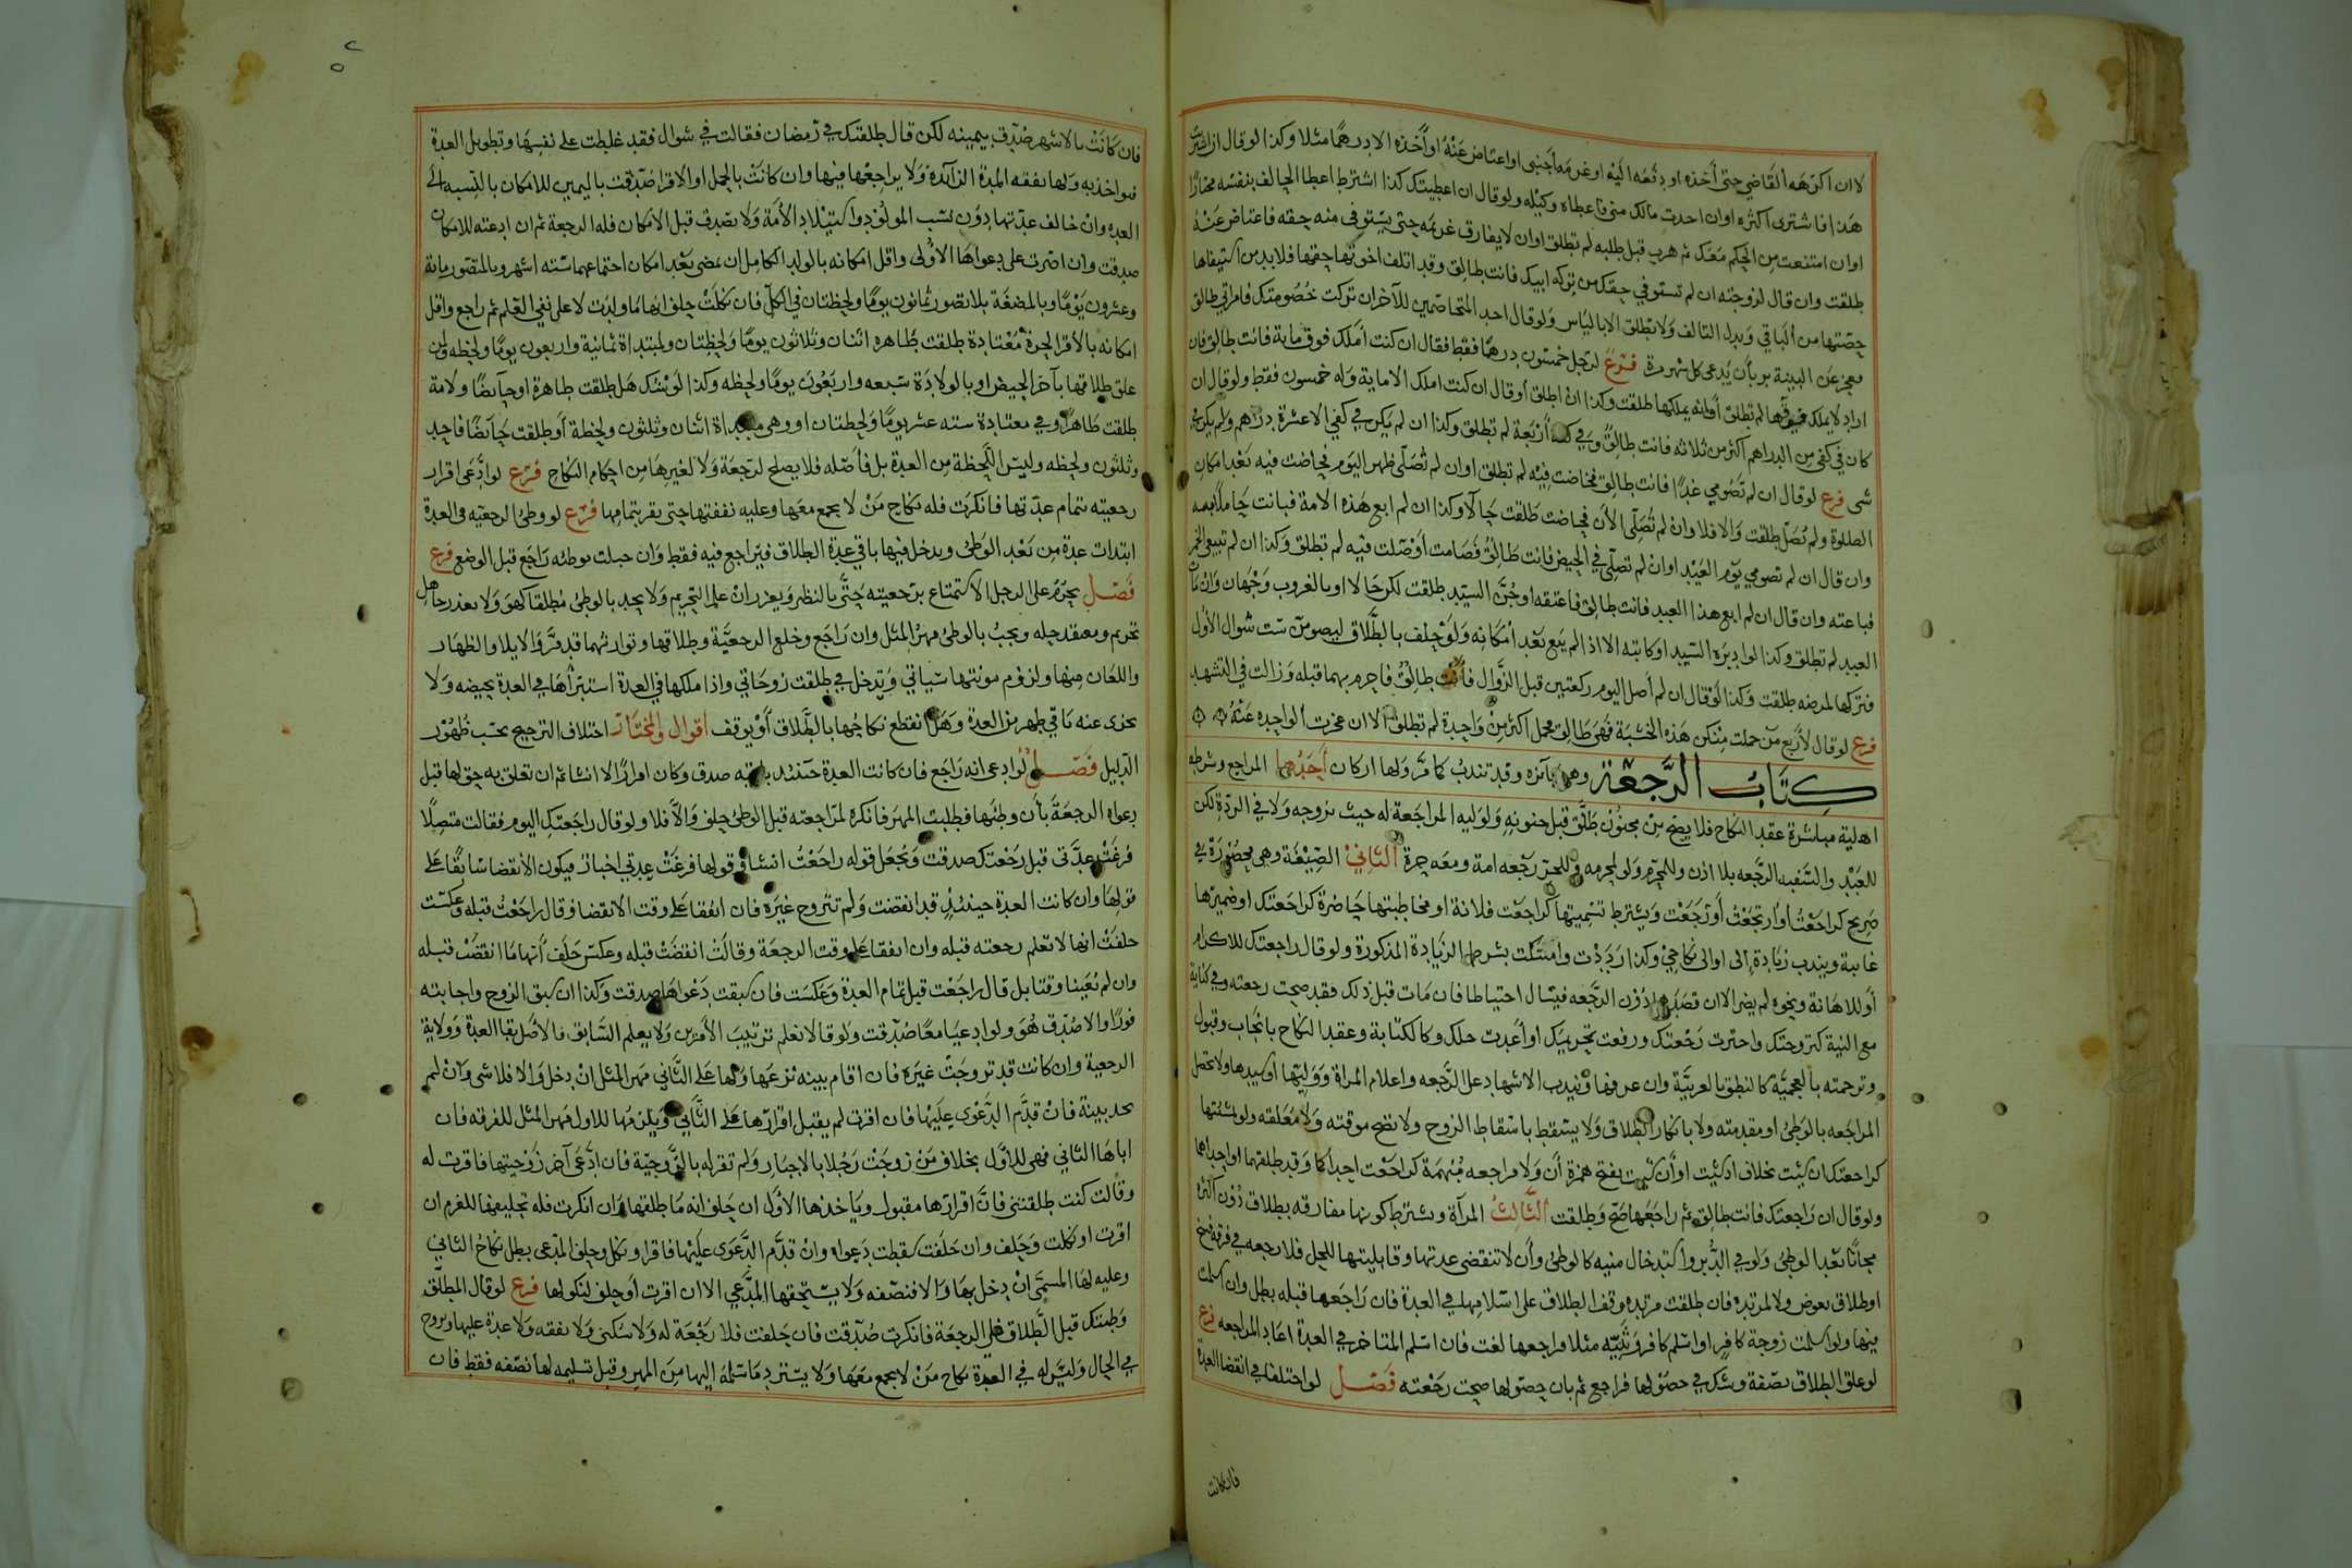 لا ان اكرهه القاضي حتى أخذه او دفعه اليه او غرمه أجنبى او اعتاض عنه او أخذه الا درهما مثلا وكذا لو قال ان اشتريت
هذا فاشترى اكثره اوان اخذت مالك منى فاعطاه وكيله ولو قال ان اعطيتك كذا اشترط اعطا الحالف بنفسه مختارا
اوان امتنعت من الحكم معك ثم هرب قبل طلبه لم تطلق اوان لا يفارق غريمه حتى يستوفى منه حقه فاعتاض عنه
طلقت وان قال لزوجته ان لم تستوفي حقك من تركه ابيك فانت طالق وقد اتلف اخوتها حقها فلا بد من استيفاها
حصتها من الباقي وبدل التالف ولا تطلق الا باليأس ولو قال احد المتخاصمين للآخر ان تركت خصومتك فامراتي طالق
فعجز عن البينة بر بأن يدعى كل شهر مرة فرع لرجل خمسون درهما فقط فقال ان كنت أملك فوق ماية فانت طالق فان
اراد لا يملك فوقها لم تطلق أو انه يملكها طلقت وكذا ان اطلق أو قال ان كنت املك الا ماية وله خمسون فقط ولو قال ان
كان في كفي من الدراهم أكثر من ثلاثه فانت طالق وفي كفه أربعة لم تطلق وكذا ان لم يكن في كفي الا عشرة دراهم ولم يكن فيه
شى فرع لو قال ان لم تصومي غدا فانت طالق فحاضت فيه لم تطلق اوان لم تصلى ظهر اليوم فحاضت فيه بعد امكان
الصلوة ولم تصل طلقت والا فلا وان لم تصلى الآن فحاضت طلقت حالا وكذا ان لم ابع هذه الامة فبانت حاملا بعد
وان قال ان لم تصومي يوم العيد اوان لم تصلي في الحيض فانت طالق فصامت أو صلت فيه لم تطلق وكذا ان لم تبيعي الخمر
فباعته وان قال ان لم ابع هذا العبد فانت طالق فاعتقه او جن السيد طلقت لكن حالا او بالغروب وجهان وان مات
العبد لم تطلق وكذا لو دبره السيد او كاتبه الا اذا لم يبع بعد امكانه ولو حلف بالطلاق ليصومن ست شوال الأول
فتركها لمرضه طلقت وكذا لو قال ان لم أصل اليوم ركعتين قبل الزوال فأنت طالق فاحرم بهما قبله وزالت في التشهد
فرع لو قال لأربع من حملت منكن هذه الخشبة فهى طالق فحمل اكثر من واحدة لم تطلق الا ان عجزت الواحده عنه
كتاب الرجعة وهى جايزه وقد تندب كما مر ولها اركان أحدها المراجع وشرطه
اهلية مباشرة عقد النكاح فلا يصح من مجنون طلق قبل جنونه ولوليه المراجعة له حيث يزوجه ولا في الردة لكن
للعبد والسفيه الرجعه بلا اذن وللمحرم ولو لمحرمه وللحر رجعه امة ومعه حرة الثاني الصيغة وهى محصورة في
صريح كراجعت أو ارتجعت أو رجعت ويشترط تسميتها كراجعت فلانة او مخاطبتها حاضرة كراجعتك او ضميرها
غايبة ويندب زيادة إلى او الى نكاحي وكذا رددت وامسكت بشرط الزيادة المذكورة ولو قال راجعتك للاكرام
أو للاهانة ونحوه لم يضر الا ان قصد دون الرجعه فيسال احتياطا فان مات قبل ذلك فقد صحت رجعته وفي كناية
مع النية كتزوجتك واخترت رجعتك ورفعت تحريمك او أعدت حلك وكالكتابة وعقد النكاح بايجاب وقبول
وترجمته بالعجمية كالنطق بالعربية وان عرفها ويندب الاشهاد على الرجعه واعلام المراة ووليها او سيدها ولا تحصل
المراجعه بالوطئ او مقدمته ولا بانكار الطلاق ولا يسقط باسقاط الزوج ولا تصح موقته ولا معلقه ولو بمشيئتها
كراجعتك ان شئت بخلاف اذ شئت او أن شئت بفتح همزة أن ولا مراجعه مبهمة كراجعت احداكما وقد طلقهما او احداهما
ولو قال ان راجعتك فانت طالق ثم راجعها صح وطلقت الثالث المرآة ويشترط كونها مفارقه بطلاق دون اكثره
مجانا بعد الوطئ ولو في الدبر واستدخال منيه كالوطئ وأن لا تنقضى عدتها وقابليتها للحل فلا رجعه في فرقة فسخ
او طلاق بعوض ولا لمرتده فان طلقت مرتده وقف الطلاق على اسلامها في العدة فان راجعها قبله بطل وان اسلمت
فيها ولو اسلمت زوجة كافر او اسلم كافر وثنيه مثلا فراجعها لغت فان اسلم المتاخر في العدة اعاد المراجعه فرع
لو علق الطلاق بصفة وشك في حصولها فراجع ثم بان حصولها صحت رجعته فصل لو اختلفا في انقضا العدة
فان كانت
فان كانت بالاشهر صدق بيمينه لكن قال طلقتك في رمضان فقالت في شوال فقد غلطت على نفسها وتطويل العدة
فيواخذ به ولها نفقه المدة الزائدة ولا يراجعها فيها وان كانت بالحمل او الاقرا صدقت باليمين للامكان بالنسبه الى
العده وان خالف عدتها دون نسب المولود واستيلاد الأمة ولا تصدق قبل الامكان فله الرجعة ثم ان ادعته للامكان
صدقت وان اصرت على دعواها الاولى واقل امكانه بالولد الكامل ان يمضى بعد امكان اجتماعهما سته اشهر وبالمتصور ماية
وعشرون يوما وبالمضغة بلا تصور ثمانون يوما ولحظتان في الكل فان نكلت حلف انها ما ولدت لا على نفي العلم ثم راجع واقل
امكانه بالأقرا لحرة معتادة طلقت بطاهره اثنان وثلاثون يوما ولحظتان ولمبتداة ثمانية واربعون يوما ولحظه ولمن
علق طلاقها بآخر الحيض او بالولادة سبعه واربعون يوما ولحظه وكذا لو شك هل طلقت طاهرة او حايضا ولامة
طلقت طاهرا وفي معتادة سته عشر يوما ولحظتان او وهى مبتداة اثنان وثلثون ولحظة أو طلقت حايضا فاحد
وثلثون ولحظه وليس اللحظة من العدة بل فاصله فلا يصلح لرجعة ولا لغيرها من احكام النكاح فرع لو ادعى اقرار
رجعيته بتمام عدتها فانكرت فله نكاح من لا يجمع معها وعليه نفقتها حتى يقر بتمامها فرع لو وطئ الرجعيه في العدة
ابتدات عدة من بعد الوطئ ويدخل فيها باقي عدة الطلاق فيراجع فيه فقط وان حبلت بوطئه راجع قبل الوضع فرع
فصل يحرم على الرجل الاستمتاع برجعيته حتى بالنظر ويعزر ان علم التحريم ولا يحد بالوطئ مطلقا كهى ولا يعذر جاهل
تحريم ومعتقد حله ويجب بالوطئ مهر المثل وان راجع وخلع الرجعية وطلاقها وتوارثهما قد مر والايلا والظهار
واللعان منها ولزوم مونتها سياتي وتدخل في طلقت زوجاتي واذا ملكها في العدة استبرأها في العدة بحيضه ولا
يجزى عنه باقي طهر من العدة وهل انقطع نكاحها بالطلاق أو يوقف اقوال والمختار اختلاف الترجيح بحسب ظهور
الدليل فصل لو ادعى انه راجع فان كانت العدة حينئذ باقيه صدق وكان اقرارا لا انشا ثم ان تعلق به حق لها قبل
دعواه الرجعة بأن وطئها فطلبت المهر فانكره لمراجعته قبل الوطئ حلف والا فلا ولو قال راجعتك اليوم فقالت متصلا
فرغت عدتى قبل رجعتك صدقت ويجعل قوله راجعت انشا وقولها فرغت عدتي اخبارا فيكون الانقضا سابقا على
قولها وان كانت العدة حينئذ قد انقضت ولم تتزوج غيره فان اتفقا على وقت الانقضا وقال راجعت قبله وعكست
حلفت انها لا تعلم رجعته قبله وان اتفقا على وقت الرجعة وقالت انقضت قبله وعكس حلف أنها ما انقضت قبله
وان لم يعينا وقتا بل قال راجعت قبل تمام العدة وعكست فان سبقت دعواها صدقت وكذا ان سبق الزوج واجابته
فورا والا صدق هو ولو ادعيا معا صدقت ولو قالا نعلم ترتيب الأمرين ولا يعلم السابق فالاصل بقا العدة وولاية
الرجعية وان كانت قد تزوجت غيره فان اقام بينه نزعها ولها على الثاني مهر المثل ان دخل والا فلا شى وان لم
يجد بينة فان قدم الدعوى عليها فان اقرت لم يقبل اقرارها على الثاني ويلزمها للاول مهر المثل للفرقه فان
اباها الثاني فهى للاول بخلاف من زوجت رجلا بالاجبار ولم تقر له بالزوجية فان ادعى آخر زوجيتها فاقرت له
وقالت كنت طلقتنى فان اقرارها مقبول وياخذها الأول ان حلف انه ما طلقها وان انكرت فله تحليفها للغرم ان
اقرت او نكلت وحلف وان حلفت سقطت دعواه وان قدم الدعوى عليها فاقر او نكل وحلف المدعى بطل نكاح الثاني
وعليه لها المسمى ان دخل بها والا فنصفه ولا يستحقها المدعي الا ان اقرت أو حلف لنكولها فرع لو قال المطلق
وطئتك قبل الطلاق فلى الرجعة فانكرت صدقت فان حلفت فلا رجعة له ولا سكنى ولا نفقه ولا عدة عليها وتزوج
في الحال وليس له في العدة نكاح من لا يجمع معها ولا يسترد ما سلمه اليها من المهر وقبل تسليمه لها نصفه فقط فان